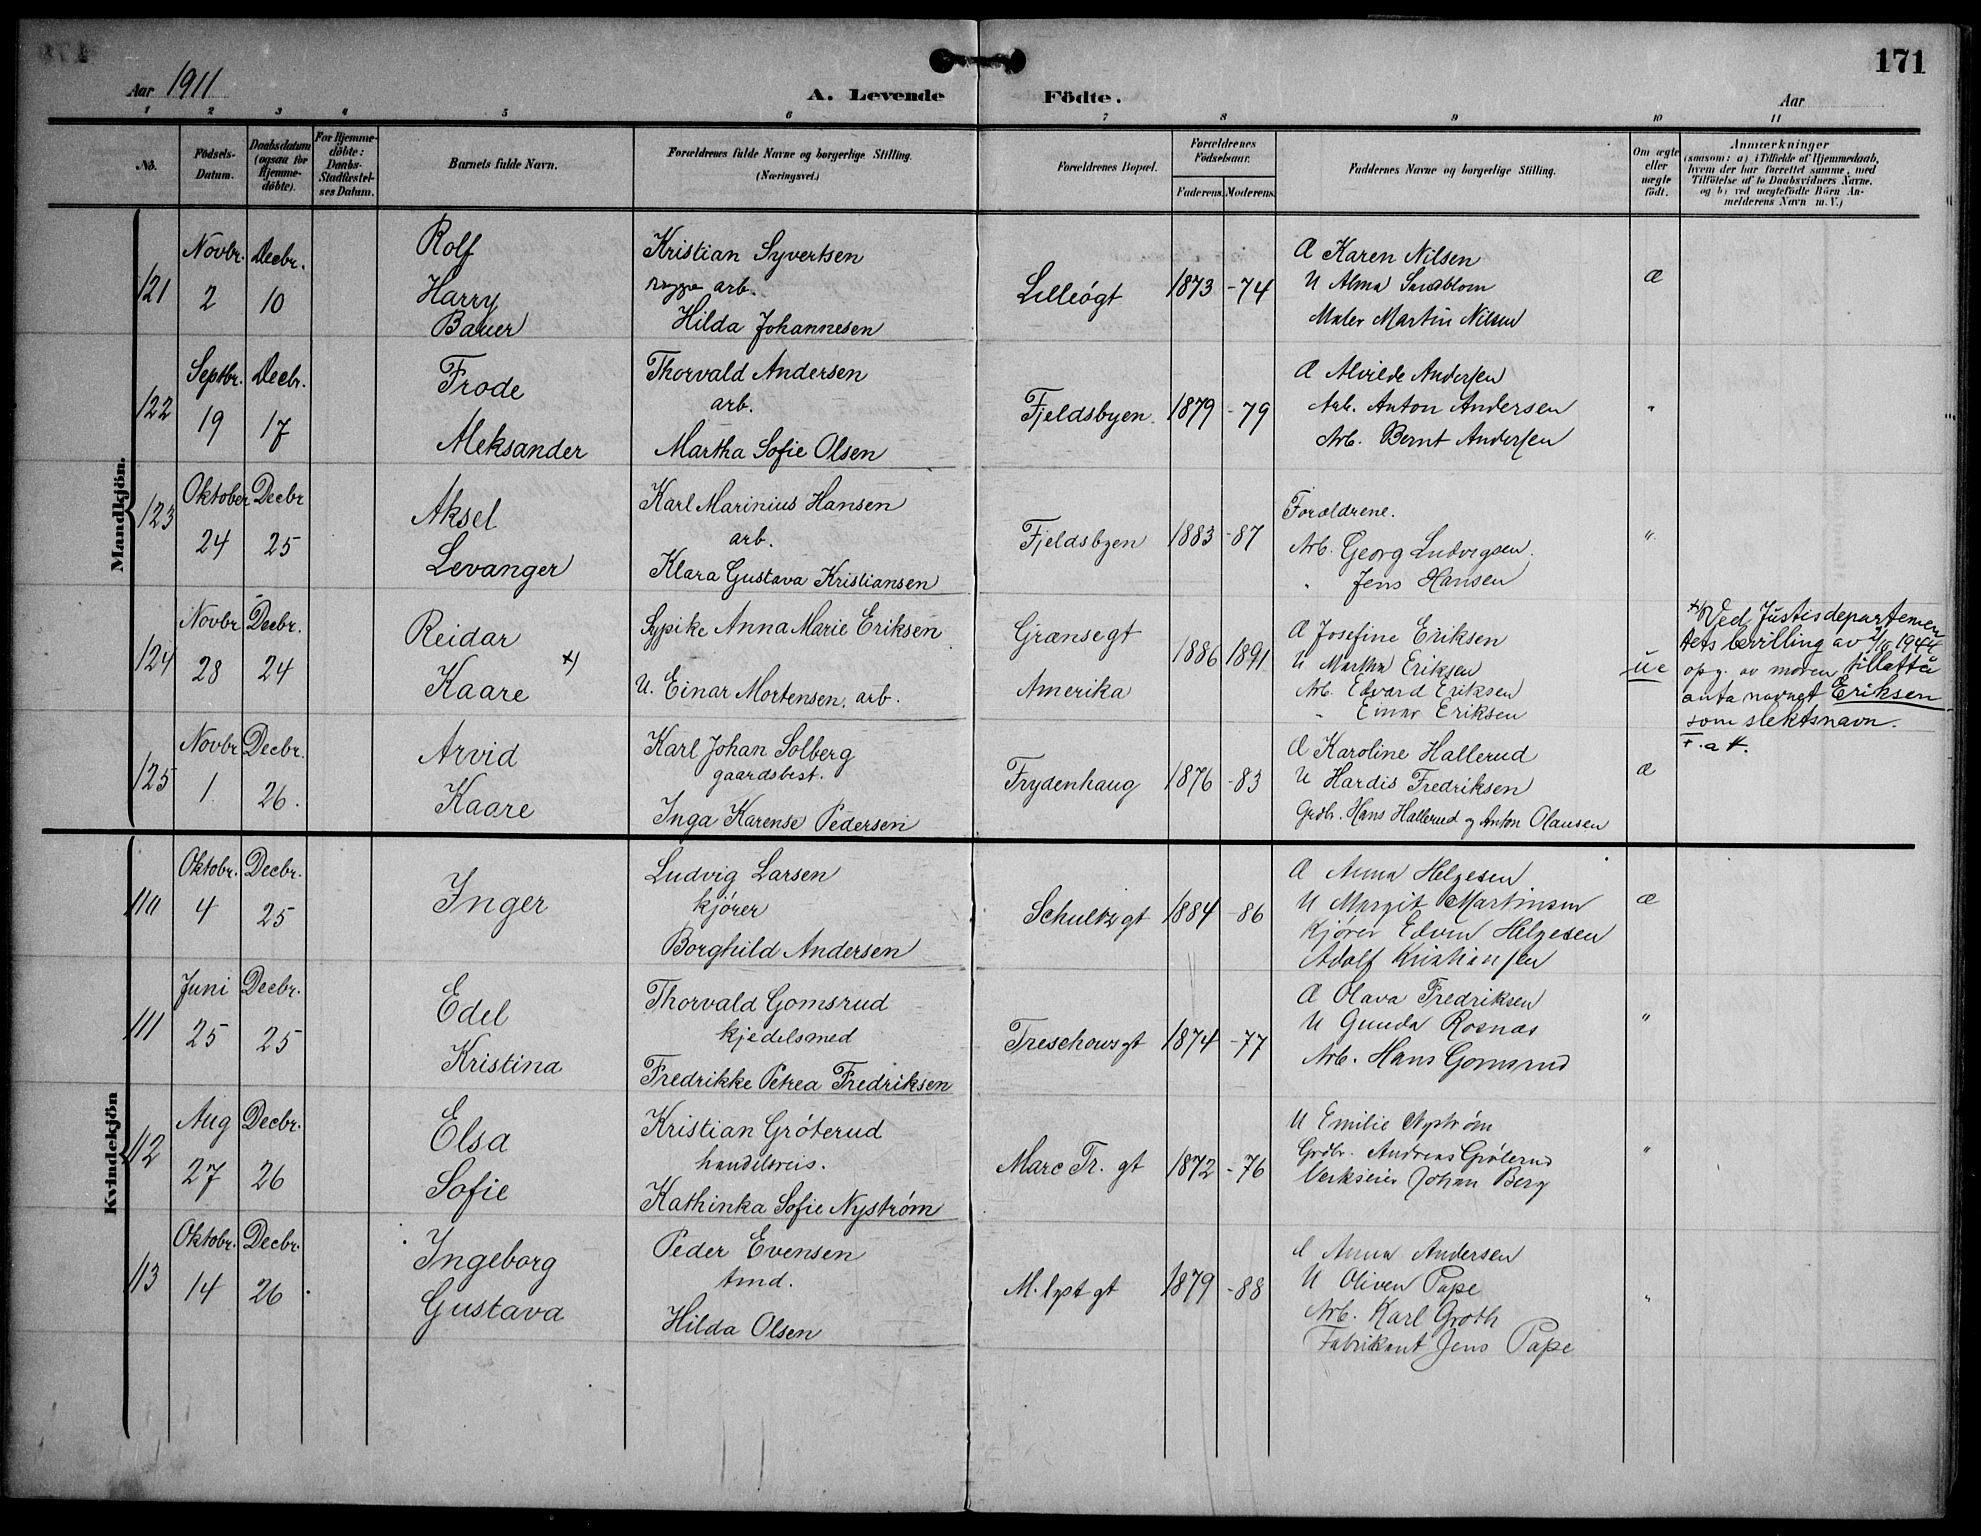 171
Aar 1911
A. Levende Födte.
Aar
1 2 3 4 5 6 7 8 9 10 11
No.
Födsels-Datum.
Daabsdatum (ogsaa for Hjemme-döbte).
For Hjemme-döbte: Daabs-Stadfæstel-ses Datum.
Barnets fulde Navn.
Forældrenes fulde Navne og borgerlige Stilling. (Næringsvei.)
Forældrenes Bopæl.
Forældrenes Födselsaar.
Faderens. Moderens.
Faddernes Navne og borgerlige Stilling.
Om ægte eller uægte födt.
Anmærkninger
(saasom: a) i Tilfælde af Hjemmedaab, hvem der har forrettet samme, med Tilföielse af to Daabsvidners Navne, og b) ved uægtefödte Börn An-melderens Navn m. V.)
Mandkjön.
121 Novbr. 2 Decbr. 10 Rolf Harry Bauer
Kristian Syvertsen
arb.
Hilda Johannesen
Lilleøgt 1873 -74
Æ Karen Nilsen
U Alma Sandblom
Maler Martin Nilsen
æ
122 Septbr. 19 Decbr. 17 Frode Aleksander
Thorvald Andersen
arb.
Martha Sofie Olsen
Fjeldsbyen. 1879 -79
Æ Alvilde Andersen
Arb. Anton Andersen
Arb. Bernt Andersen
"
123 Oktober 24 Decbr 25 Aksel Levanger
Karl Marinius Hansen
arb.
Klara Gustava Kristiansen
Fjeldsbyen 1883 -87
Forældrene.
Arb. Georg Ludvigsen.
" Jens Hansen
"
124 Novbr 28 Decbr. 24 Reidar Kaare x)
Sypike Anna Marie Eriksen
U. Einar Mortensen, arb.
Grænsegt
Amerika
1886 1891
Æ Josefine Eriksen
U Martha Eriksen
Arb. Edvard Eriksen
" Einar Eriksen
u e
x) Ved Justisdepartemen
tets bevilling av 1944
opg. av moren tillatt å
anta navnet Eriksen
som slektsnavn.
F. a. K.
125 Novbr 1 Decbr. 26. Arvid Kaare
Karl Johan Solberg
gaardsbest.
Inga Karense Pedersen
Frydenhaug 1876 -83
Æ Karoline Hallerud
U Hardis Fredriksen
Grdbr. Hans Hallerud og Anton Olausen
æ
Kvindekjön
110 Oktobr. 4 Decbr. 25 Inger
Ludvig Larsen
kjører
Borghild Andersen
Schultzgt 1884 -86
Æ Anna Helgesen
U Margit Martinsen
Kjører Edvin Helgesen
Adolf Kristiansen
æ
111 Juni 25 Decbr. 25 Edel Kristina
Thorvald Gomsrud
kjedelsmed
Fredrikke Petrea Fredriksen
Treschowsgt 1874 -77
Æ Olava Fredriksen
U Gunda Rosnæs
Arb. Hans Gomsrud
"
112 Aug 27 Decbr. 26 Elsa Sofie
Kristian Grøterud
handelsreis.
Kathinka Sofie Nystrøm
Marc Tr. gt 1872 -76
U Emilie Nystrøm
Grdbr. Andreas Grøterud
Verkseier Johan Berg
"
113 Oktobr. 14 Decbr. 26 Ingeborg Gustava
Peder Evensen
tmd.
Hilda Olsen
M. lypt gt 1879 -88
Æ Anna Andersen
U Oliven Pape
Arb. Karl Groth
Fabrikant Jens Pape
"